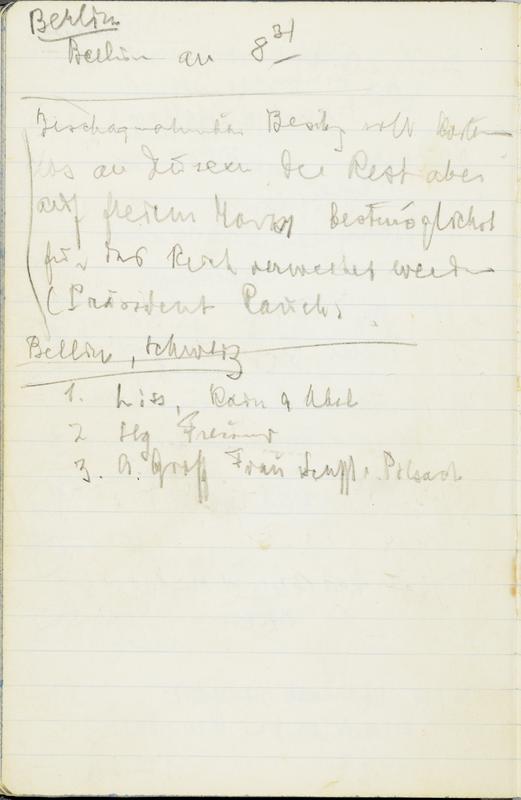 Berlin
Berlin an 8 31
Beschagnahmter Besitz soll kosten
los an Museen der Rest aber
auf freiem Markt bestmöglichst
für das Reich verwertet werden
(Präsident Rauch)
Berlin, Schweiz
1. Liss, Kain & Abel
2 Slg
3. A. Graff Frau Senfft. Pilsach